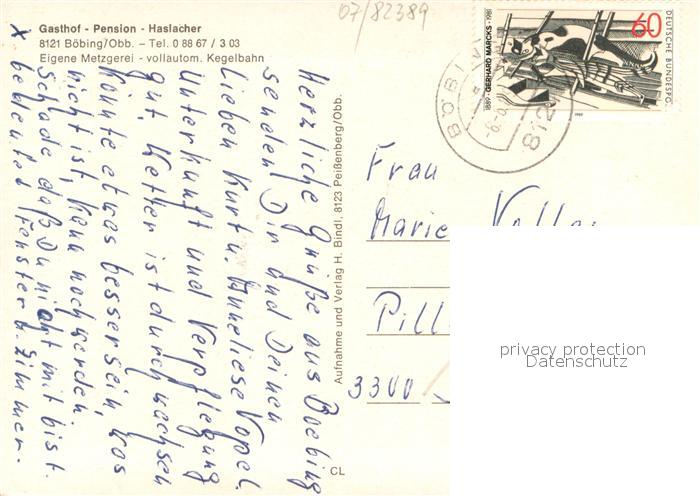 07/82389
Gasthof - Pension - Haslacher
8121 Böbing/Obb. – Tel. 0 88 67 / 3 03
Eigene Metzgerei - vollautom. Kegelbahn
Herzliche Grüße aus Boebing
senden Dir und Deinen
Lieben Kurt u. Anneliese Vopel.
Unterkunft und Verpflegung
gut, Wetter ist durchwachsen
könnte etwas besser sein, was
nicht ist, kann noch werden.
Schade daß Du nicht mit bist.
X bedeutet Fenster u. Zimmer.
Aufnahme und Verlag H. Bindl, 8123 Peißenberg/Obb.
CL
60
DEUTSCHE BUNDESPOST
1889 · GERHARD MARCKS · 1981
1989
BÖBI
812
Frau
Marie
Pill
3300
privacy protection
Datenschutz